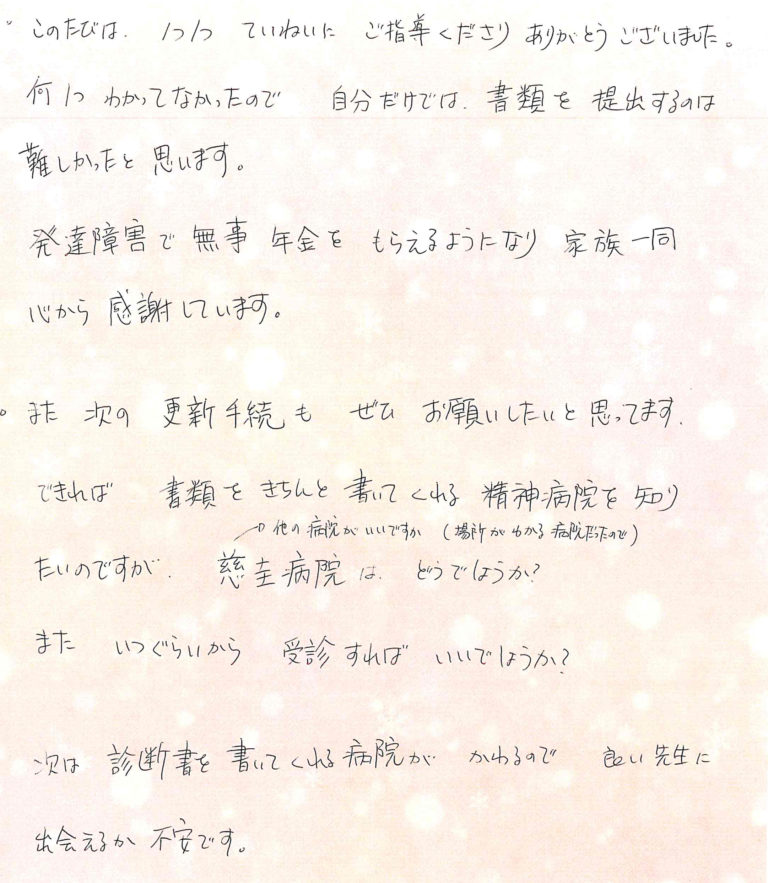 。このたびは、1つ1つ ていねいに ご指導くださり ありがとうございました。
何1つ わかってなかったので 自分だけでは、書類を 提出するのは
難しかったと 思います。
発達障害で 無事 年金を もらえるようになり 家族一同
心から 感謝しています。
。また 次の 更新手続も ぜひ お願いしたいと思ってます、
できれば 書類を きちんと 書いてくれる 精神病院を 知り
→他の病院がいいですか (場所がわかる病院だったので)
たいのですが、 慈圭病院は、 どうでしょうか?
また いつぐらいから 受診すれば いいでしょうか?
次は 診断書を 書いてくれる病院が かわるので 良い先生に
出会えるか 不安です。